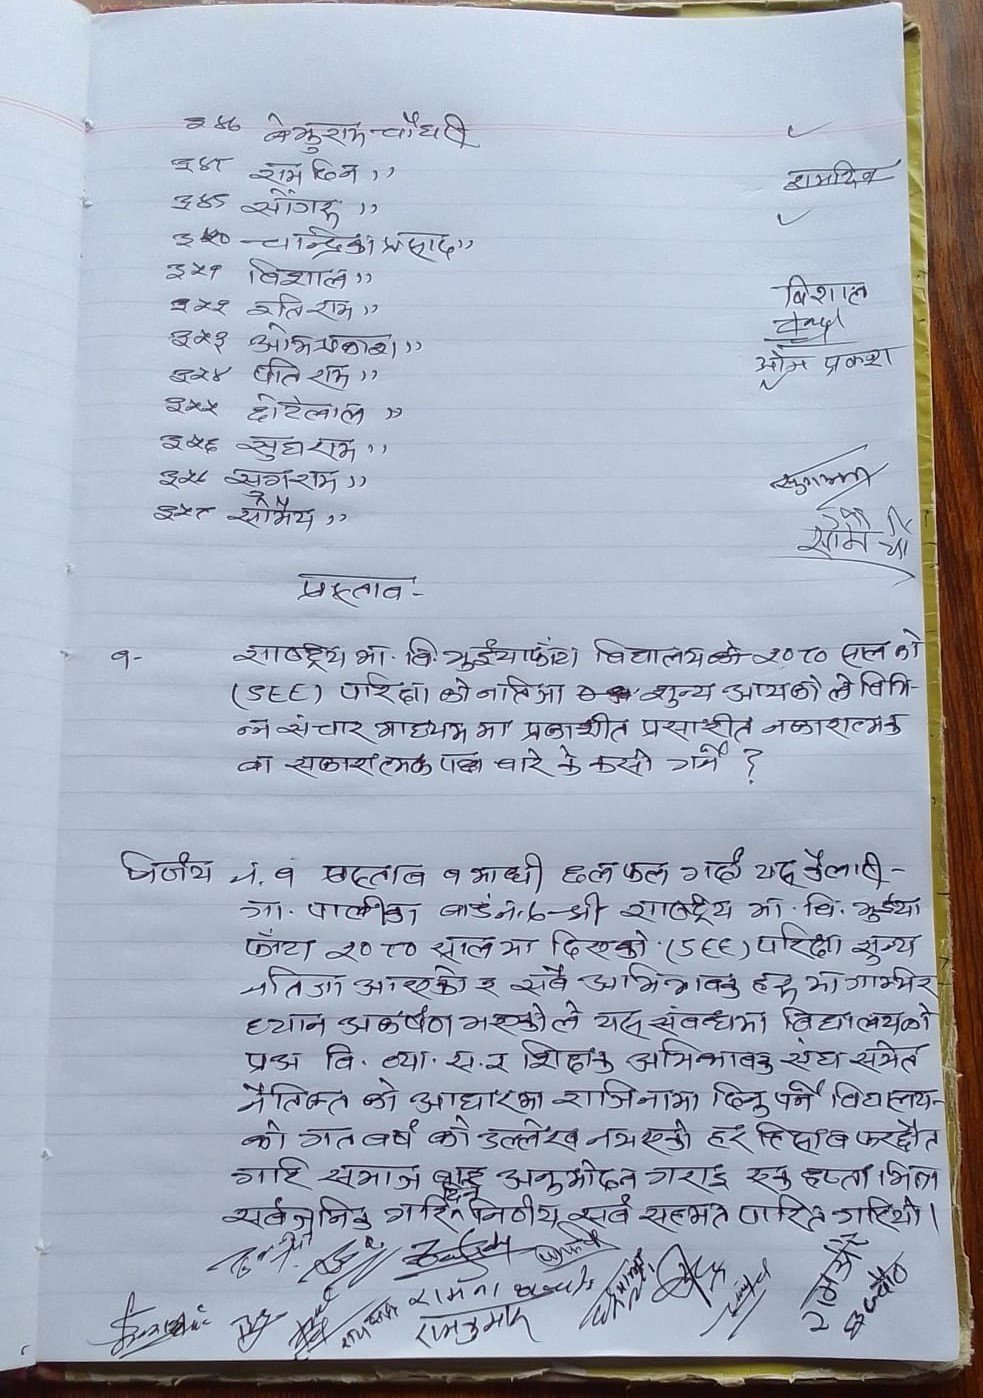 ३४७ बेझुराम चौधरी
३४८ राम दिन ,,
रामदिन
३४९ सोंगरु ,,
३५० चान्द्रिका प्रसाद ,,
३५१ बिशाल ,,
बिशाल
३५२ इति राम ,,
३५३ ओमप्रकाश ,,
ओम प्रकाश
३५४ पति राम ,,
३५५ छोटेलाल ,,
३५६ सुघराम ,,
३५७ सगराम ,,
३५८ सोमैय ,,
सोमै चौ
प्रस्ताव -
१- राष्ट्रिय मा. बि. भुईयाफाँटा विद्यालयको २०८० साल को
(SEE) परिक्षा को नातिजा शुन्य आयको ले बिभि-
न्न संचार माध्यम मा प्रकाशीत प्रसाशीत नकारात्मक
वा सकारात्मक पक्ष बारे के कसो गर्ने ?
निर्णय नं. १ प्रस्ताव १ माथी छलफल गर्दा यह कैलारी-
गा. पालीका वार्ड नं. ७ श्री राष्ट्रिय मा. बि. भुईया
फाँटा २०८० साल मा दिएको (SEE) परिक्षा सुन्य
नतिजा आएको र सबै अभिभावक हरु मा गाम्भिर
ध्यान अकर्षण भएकोले यस संबन्धमा विद्यालयको
प्रअ वि. व्या. स. र शिक्षक अभिभावक संघ समेत
नैतिकत को आधारमा राजिनामा दिनु पर्ने विद्यालय-
को गत बर्ष को उल्लेख नभएको हर हिसाब फरछौत
गरि समाज बाट अनुमोदन गराइ एक हप्ता भित्र
सर्वजनिक गरि दिने निर्णय सर्व सहमत पारित गरियो।
रामकुमार